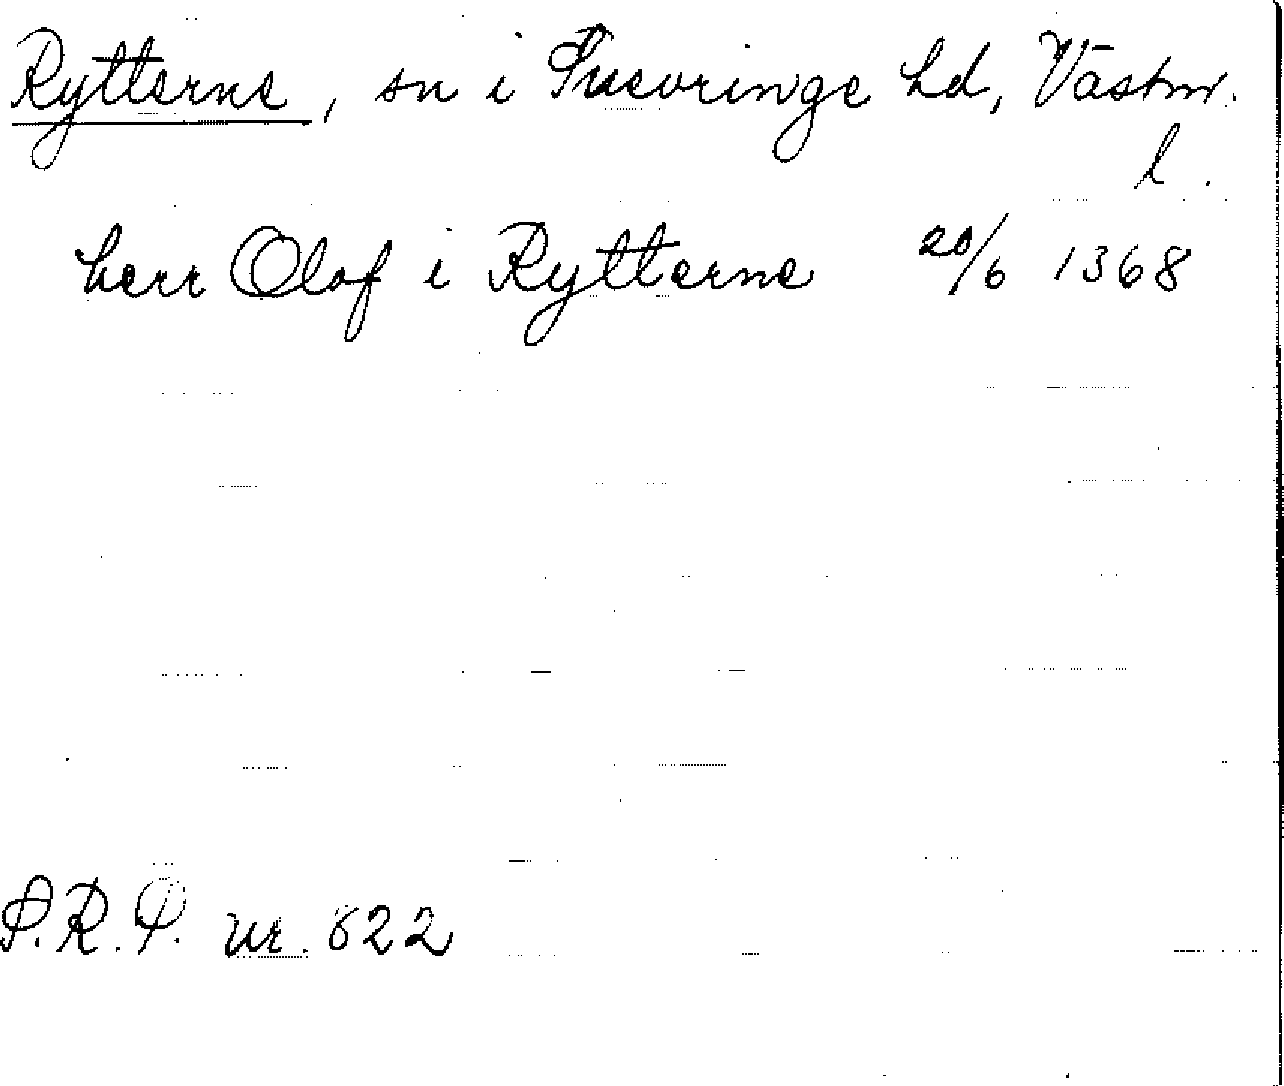 Rytterne, sn i Snevringe hd, Västm.
l.
herr Olof i Rytterne 20/6 1368
S.R.P. nr. 822